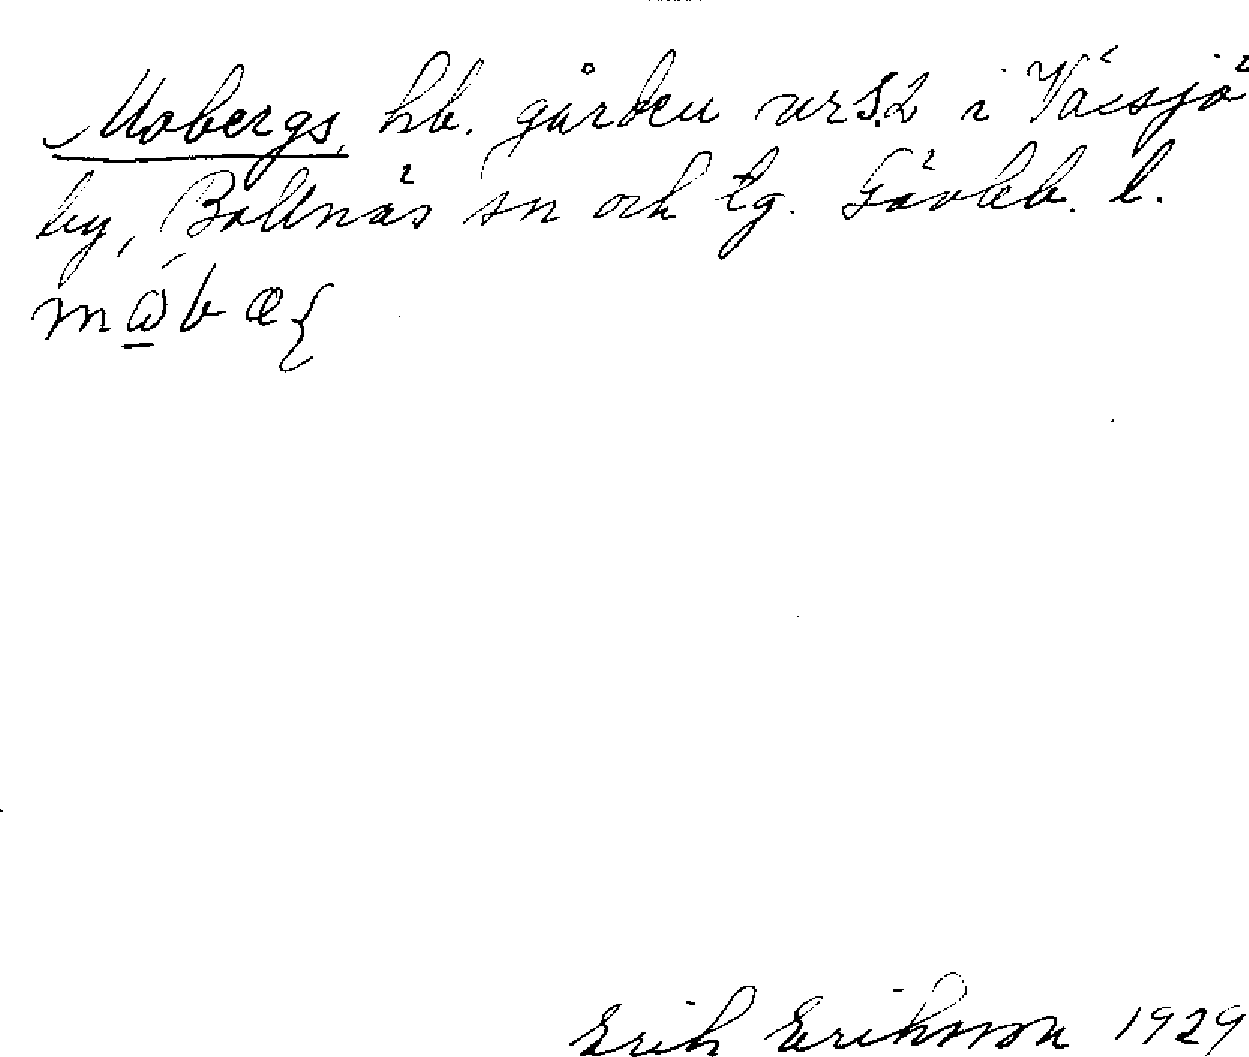 Mobergs, hb. gården nr 5.2 i Växsjö
by, Bollnäs sn och tg. Gävleb. l.
Erik Eriksson 1929